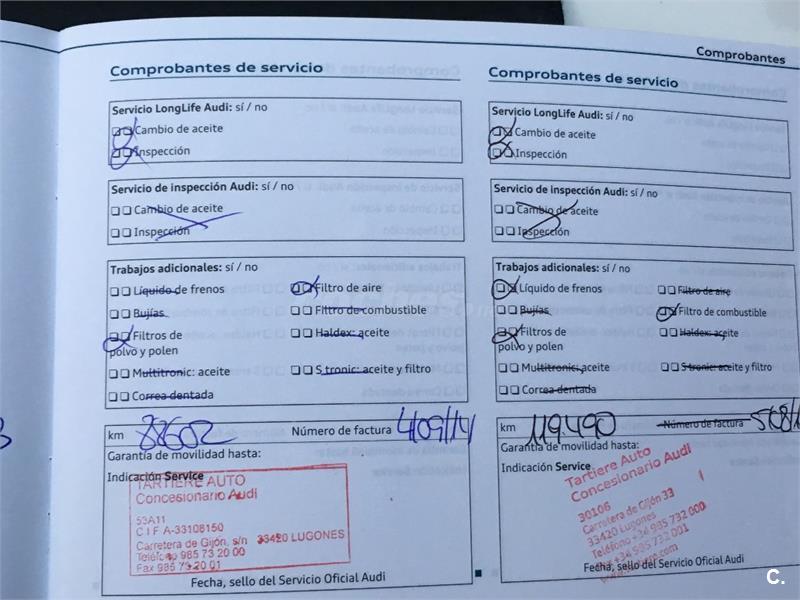 Comprobantes
Comprobantes de servicio
Servicio LongLife Audi: sí / no
Cambio de aceite
Inspección
Servicio de inspección Audi: sí / no
Cambio de aceite
Inspección
Trabajos adicionales: sí / no
Líquido de frenos
Filtro de aire
Bujías
Filtro de combustible
Filtros de
polvo y polen
Haldex: aceite
Multitronic: aceite
S tronic: aceite y filtro
Correa dentada
km 88602 Número de factura 4/09/14
Garantía de movilidad hasta:
Indicación Service
TARTIERE AUTO
Concesionario Audi
53A11
C I F A-33108150
Carretera de Gijón, s/n 33420 LUGONES
Teléfono 985 73 20 00
Fax 985 73 20 01
Fecha, sello del Servicio Oficial Audi
Comprobantes de servicio
Servicio LongLife Audi: sí / no
Cambio de aceite
Inspección
Servicio de inspección Audi: sí / no
Cambio de aceite
Inspección
Trabajos adicionales: sí / no
Líquido de frenos
Filtro de aire
Bujías
Filtro de combustible
Filtros de
polvo y polen
Haldex: aceite
Multitronic: aceite
S tronic: aceite y filtro
Correa dentada
km 119.490 Número de factura
Garantía de movilidad hasta:
Indicación Service
Tartiere Auto
Concesionario Audi
30106
Carretera de Gijón 33
33420 Lugones
Teléfono +34 985 732 000
+34 985 732 001
Fecha, sello del Servicio Oficial Audi
C.